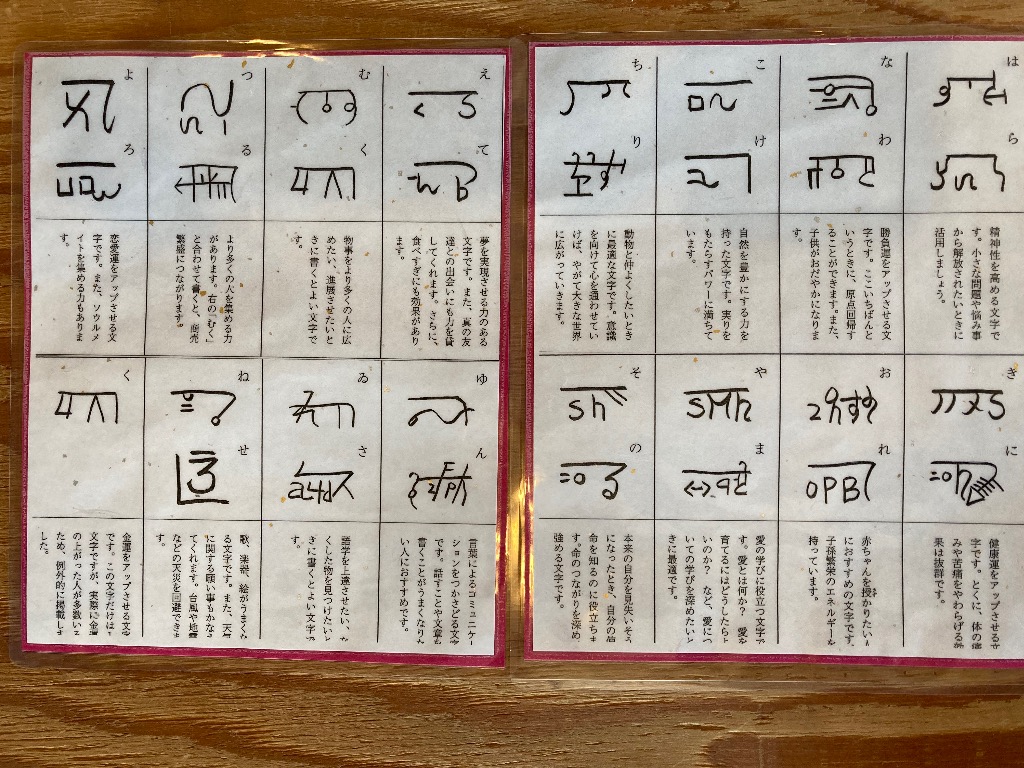 は
ら
精神性を高める文字で
す。小さな問題や悩み事
から解放されたいときに
活用しましょう。
な
わ
勝負運をアップさせる文
字です。ここいちばんと
いうときに、原点回帰す
ることができます。また、
子供がおだやかになりま
す。
こ
け
自然を豊かにする力を
持った文字です。実りを
もたらすパワーに満ちて
います。
ち
り
動物と仲よくしたいとき
に最適な文字です。意識
を向けて心を通わせてい
けば、やがて大きな世界
に広がっていきます。
ぎ
に
健康運をアップさせる文
字です。とくに、体の痛
みや苦痛をやわらげる効
果は抜群です。
お
れ
赤ちゃんを授かりたい人
におすすめの文字です。
子孫繁栄のエネルギーを
持っています。
や
ま
愛の学びに役立つ文字で
す。愛とは何か？愛を
育てるにはどうしたらよ
いのか？など、愛につ
いての学びを深めたいと
きに最適です。
そ
の
本来の自分を見失いそう
になったとき、自分の使
命を知るのに役立ちま
す。命のつながりを深め、
強める文字です。
え
て
夢を実現させる力のある
文字です。また、真の友
達との出会いにも力を貸
してくれます。さらに、
食べすぎにも効果があり
ます。
む
く
物事をより多くの人に広
めたい、進展させたいと
きに書くとよい文字で
す。
つ
る
より多くの人を集める力
があります。右の「むく」
と合わせて書くと、商売
繁盛につながります。
よ
ろ
恋愛運をアップさせる文
字です。また、ソウルメ
イトを集める力もありま
す。
ゆ
ん
言葉によるコミュニケー
ションをつかさどる文字
です。話すことや文章を
書くことがうまくなりた
い人におすすめです。
ゐ
さ
語学を上達させたい、な
くした物を見つけたいと
きに書くとよい文字で
す。
ね
せ
歌、楽器、絵がうまくな
る文字です。また、天気
に関する願い事もかなえ
てくれます。台風や地震
などの天災を回避できま
す。
く
金運をアップさせる文字
です。この文字だけは1
文字ですが、実際に金運
の上がった人が多数いる
ため、例外的に掲載しま
した。